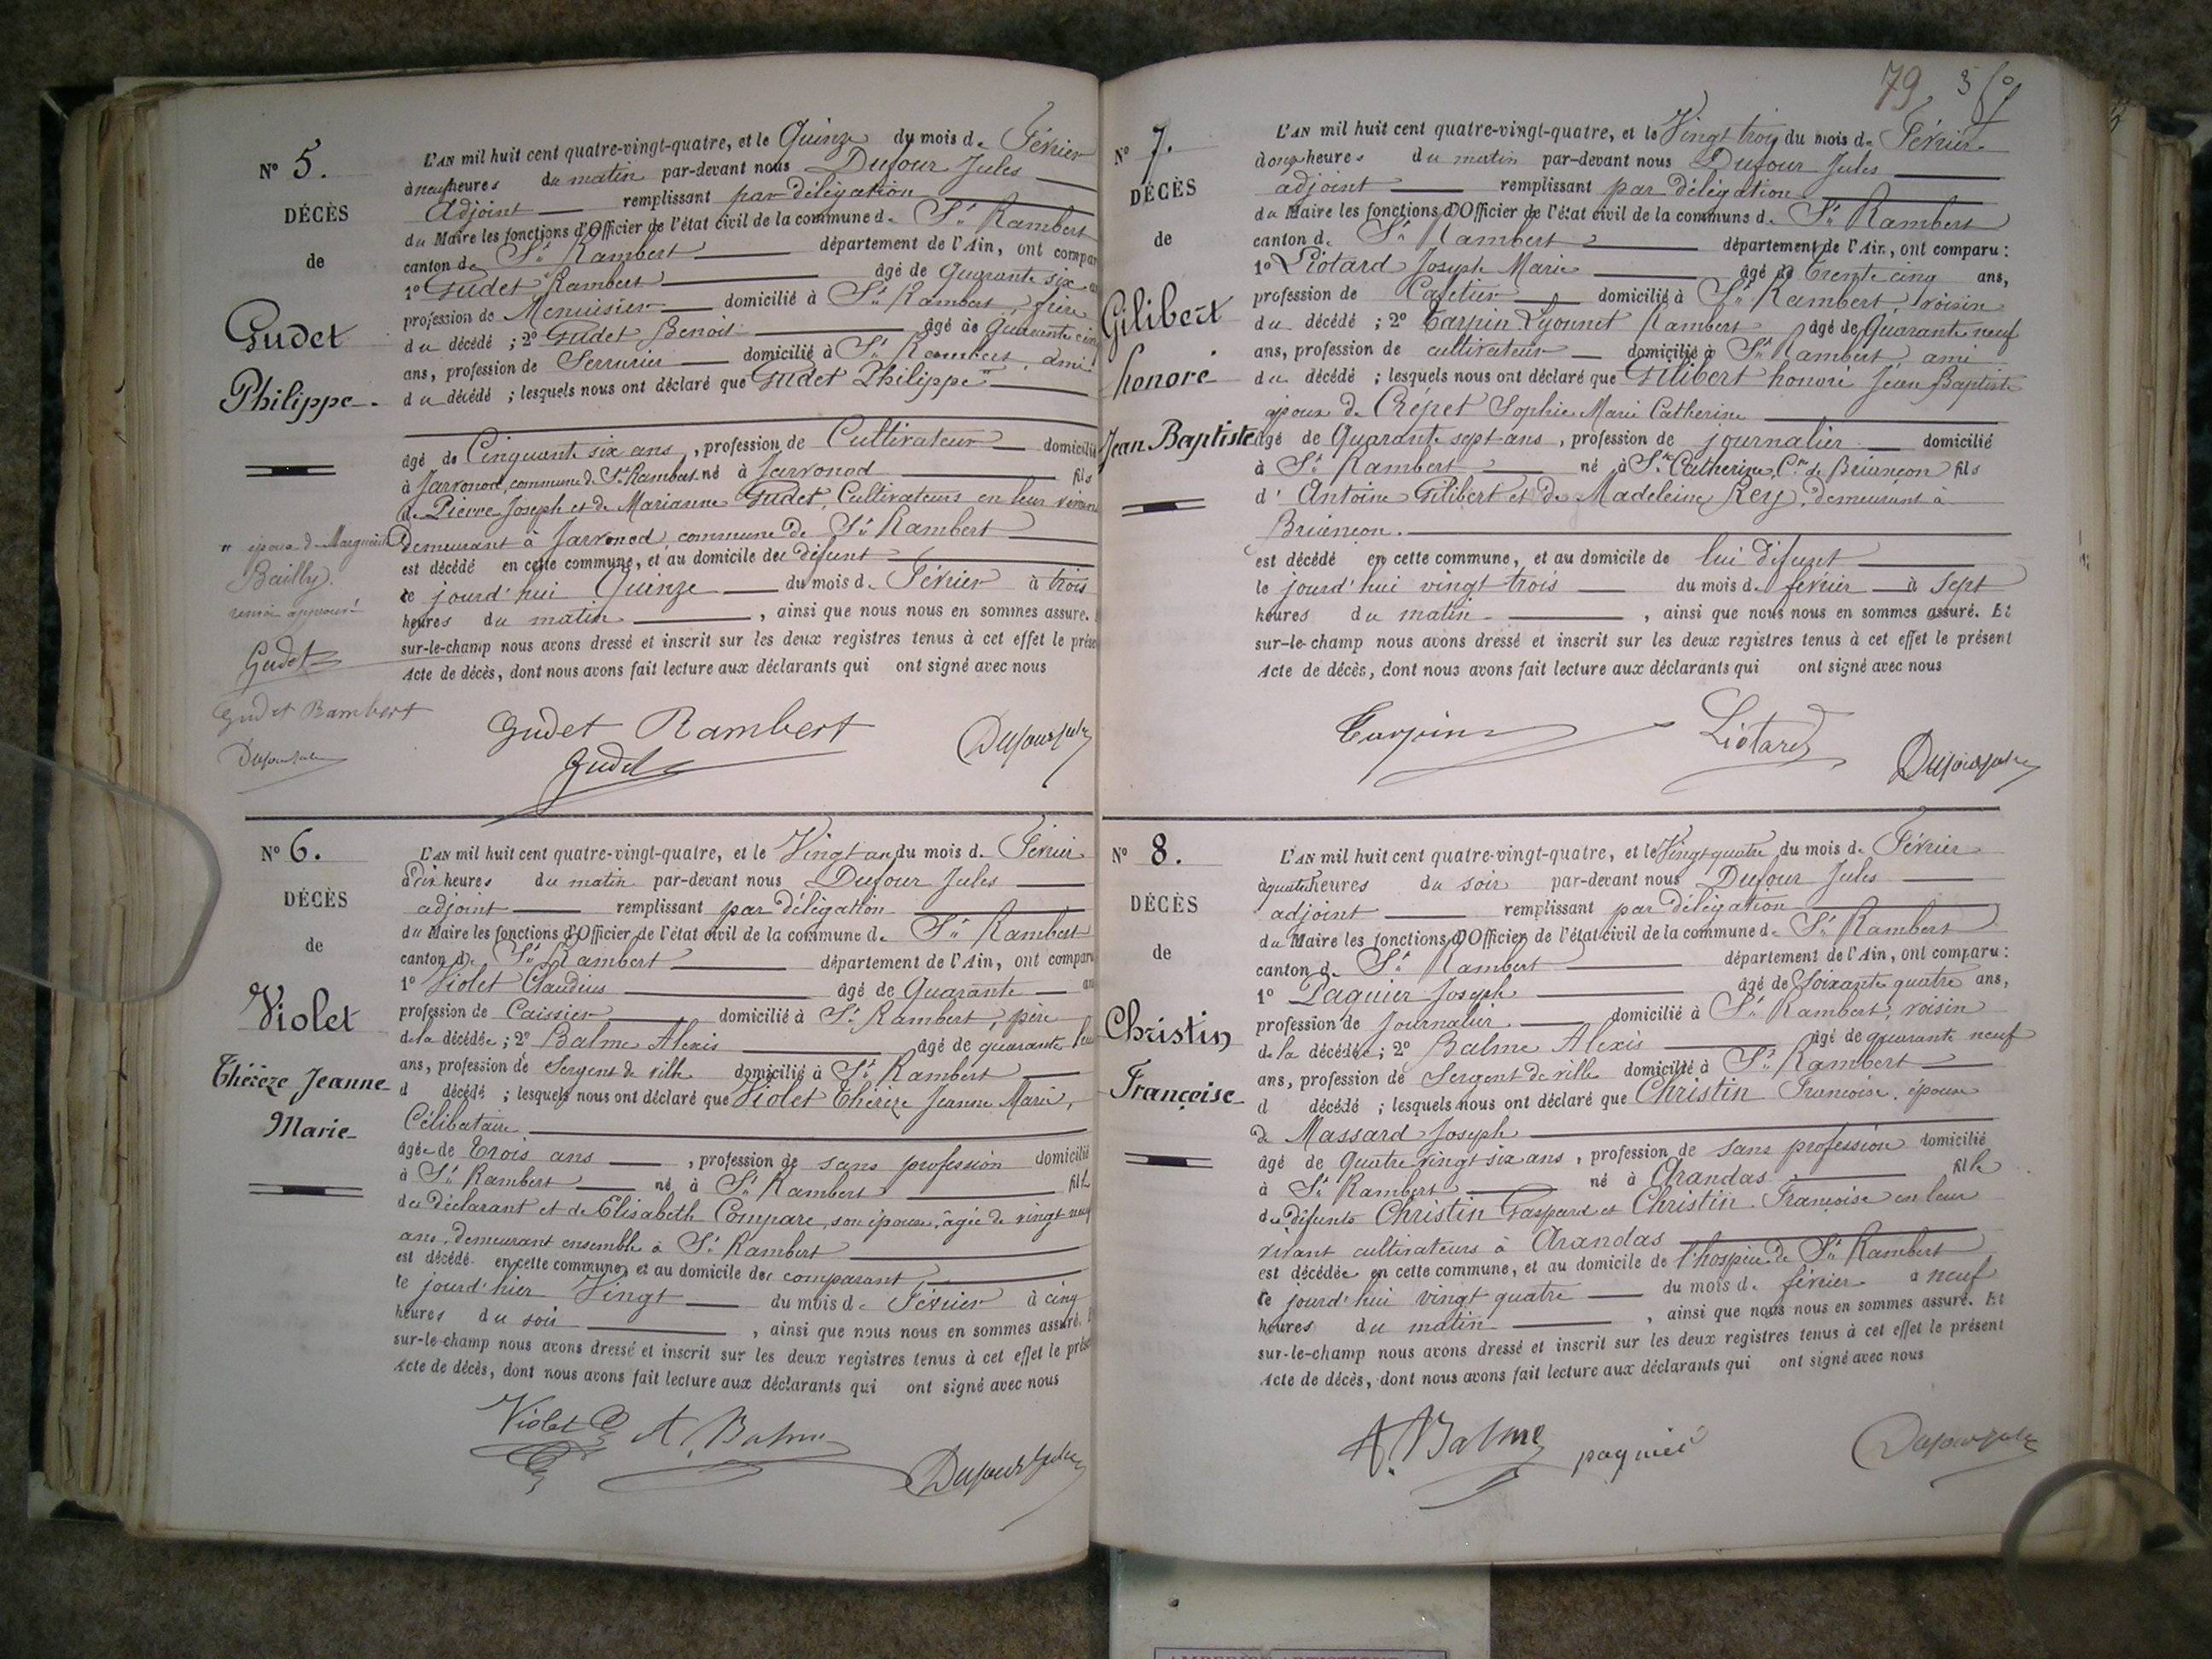 N° 5.
DÉCÈS
de
Gudet
Philippe
L'AN mil huit cent quatre-vingt-quatre, et le Quinze du mois de Février
à neuf heures du matin par-devant nous Dufour Jules
Adjoint remplissant par délégation
du Maire les fonctions d'Officier de l'état civil de la commune de St Rambert
canton de St Rambert département de l'Ain, ont compar
1° Gudet Rambert âgé de Quarante six
profession de Menuisier domicilié à St Rambert, frère
du décédé ; 2° Gudet Benoit âgé de Quarante cinq
ans, profession de Serrurier domicilié à St Rambert, ami
du décédé ; lesquels nous ont déclaré que Gudet Philippe "
âgé de Cinquante six ans, profession de Cultivateur domicilié
à Jarvonod, commune de St Rambert né à Jarvonod fils
de Pierre Joseph et de Marianne Gudet, Cultivateurs en leur vivant
Demeurant à Jarvonod commune de St Rambert
est décédé en cette commune, et au domicile du défunt
le jourd'hui Quinze du mois de Février à trois
heures du matin, ainsi que nous nous en sommes assuré.
sur-le-champ nous avons dressé et inscrit sur les deux registres tenus à cet effet le prése
Acte de décès, dont nous avons fait lecture aux déclarants qui ont signé avec nous
" époux de Marguerite
Bailly.
renvoi approuvé
Gudet
Gudet Rambert
Dufour Jules
Gudet Rambert
Gudet
Dufour Jules
N° 6.
DÉCÈS
de
Violet
Thérèze Jeanne
Marie
L'AN mil huit cent quatre-vingt-quatre, et le Vingt un du mois de Février
à dix heures du matin par-devant nous Dufour Jules
adjoint remplissant par délégation
du Maire les fonctions d'Officier de l'état civil de la commune de St Rambert
canton de St Rambert département de l'Ain, ont comparu
1° Violet Claudius âgé de Quarante an
profession de Caissier domicilié à St Rambert, père
de la décédée ; 2° Balme Alexis âgé de quarante
ans, profession de Sergent de ville domicilié à St Rambert
d décédé ; lesquels nous ont déclaré que Violet Thérèze Jeanne Marie,
Célibataire
âgée de Trois ans, profession de sans profession domicilié
à St Rambert né à St Rambert fille
du déclarant et de Elisabeth Compare, son épouse, âgée de vingt neuf
ans, demeurant ensemble à St Rambert
est décédé en cette commune, et au domicile des comparant,
le jourd'hier Vingt du mois de Février à cinq
heures du soir, ainsi que nous nous en sommes assuré.
sur-le-champ nous avons dressé et inscrit sur les deux registres tenus à cet effet le prése
Acte de décès, dont nous avons fait lecture aux déclarants qui ont signé avec nous
Violet C
A. Balme
Dufour Jules
79
N° 7.
DÉCÈS
de
Gilibert
honoré
Jean Baptiste
L'AN mil huit cent quatre-vingt-quatre, et le Vingt trois du mois de Février
à onze heures du matin par-devant nous Dufour Jules
adjoint remplissant par délégation
du Maire les fonctions d'Officier de l'état civil de la commune de St Rambert
canton de St Rambert département de l'Ain, ont comparu :
1° Liotard Joseph Marie âgé de Trente cinq ans,
profession de Cafetier domicilié à St Rambert, voisin
du décédé ; 2° Tarpin Lyonnet Rambert âgé de Quarante neuf
ans, profession de cultivateur domicilié à St Rambert, ami
du décédé ; lesquels nous ont déclaré que Gilibert honoré Jean Baptiste
époux de Crépet Sophie Marie Catherine
âgé de Quarante sept ans, profession de journalier domicilié
à St Rambert né à Ste Catherine, Cne de Briançon fils
d'Antoine Gilibert et de Madeleine Rey, demeurant à
Briançon.
est décédé en cette commune, et au domicile de lui défunt
le jourd'hui vingt trois du mois de février à sept
heures du matin, ainsi que nous nous en sommes assuré. Et
sur-le-champ nous avons dressé et inscrit sur les deux registres tenus à cet effet le présent
Acte de décès, dont nous avons fait lecture aux déclarants qui ont signé avec nous
Tarpin
Liotard
Dufour Jules
N° 8.
DÉCÈS
de
Christin
Françoise
L'AN mil huit cent quatre-vingt-quatre, et le Vingt quatre du mois de Février
à quatre heures du soir par-devant nous Dufour Jules
adjoint remplissant par délégation
du Maire les fonctions d'Officier de l'état civil de la commune de St Rambert
canton de St Rambert département de l'Ain, ont comparu :
1° Paquier Joseph âgé de Soixante quatre ans,
profession de Journalier domicilié à St Rambert, voisin
de la décédée ; 2° Balme Alexis âgé de quarante neuf
ans, profession de Sergent de ville domicilié à St Rambert
d décédé ; lesquels nous ont déclaré que Christin Françoise, épouse
de Massard Joseph
âgé de Quatre vingt six ans, profession de sans profession domicilié
à St Rambert né à Arandas fille
des défunts Christin Gaspard et Christin Françoise en leur
vivant cultivateurs à Arandas
est décédée en cette commune, et au domicile de l'hospice de St Rambert
le jourd'hui vingt quatre du mois de février à neuf
heures du matin, ainsi que nous nous en sommes assuré. Et
sur-le-champ nous avons dressé et inscrit sur les deux registres tenus à cet effet le présent
Acte de décès, dont nous avons fait lecture aux déclarants qui ont signé avec nous
A. Balme
paquier
Dufour Jules